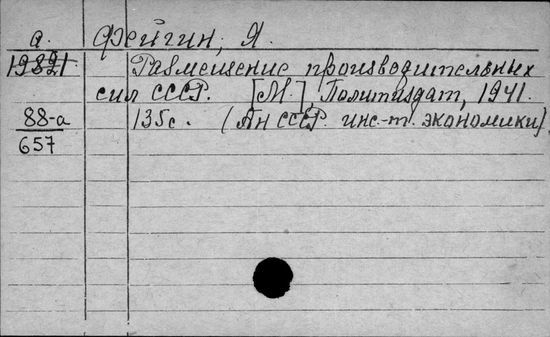 а. Фейгин, Я.
19821 Размещение производительных
сил СССР. [М.], Политиздат, 1941.
88-а 135с. (Ан СССР. инс-т. экономики).
657